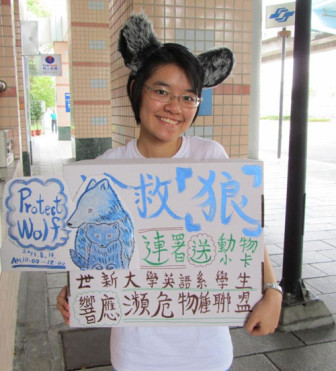 Protect
Wolf
救「狼」
連署送動物
小卡
世新大學英語系學生
響應瀕危物種聯盟